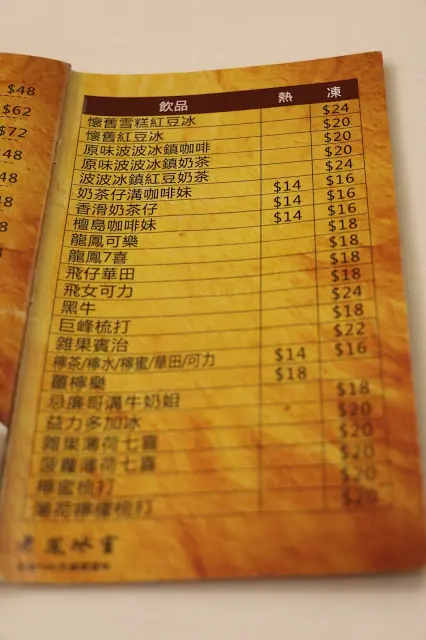 $48
$62
$72
$48
48
48
飲品 熱 凍
懷舊雪糕紅豆冰 $24
懷舊紅豆冰 $20
原味波波冰鎮咖啡 $20
原味波波冰鎮奶茶 $20
波波冰鎮紅豆奶茶 $24
奶茶仔溝咖啡妹 $14 $16
香滑奶茶仔 $14 $16
檀島咖啡妹 $14 $16
龍鳳可樂 $18
龍鳳7喜 $18
飛仔華田 $18
飛女可力 $18
黑牛 $24
巨峰梳打 $18
雜果賓治 $22
檸茶/檸水/檸蜜/華田/可力 $14 $16
薑檸樂 $18
忌廉哥溝牛奶姐 $18
益力多加冰 $20
雜果薄荷七喜 $20
菠蘿薄荷七喜 $20
檸蜜梳打 $20
薄荷檸檬梳打 $20
冰室